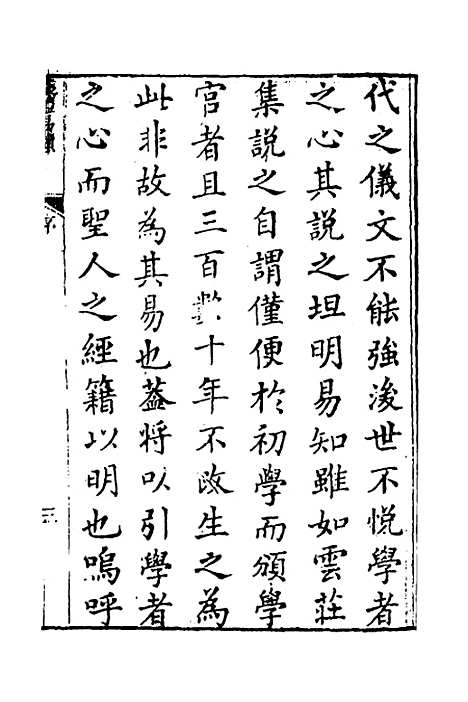 代之儀文不能強浚世不悅學者
之心其說之坦明易知雖如雲莊
集說之自謂僅便於初學而頒學
宮者且三百數十年不改生之為
此非故為其易也蓋將以引學者
之心而聖人之經籍以明也嗚呼
序
三